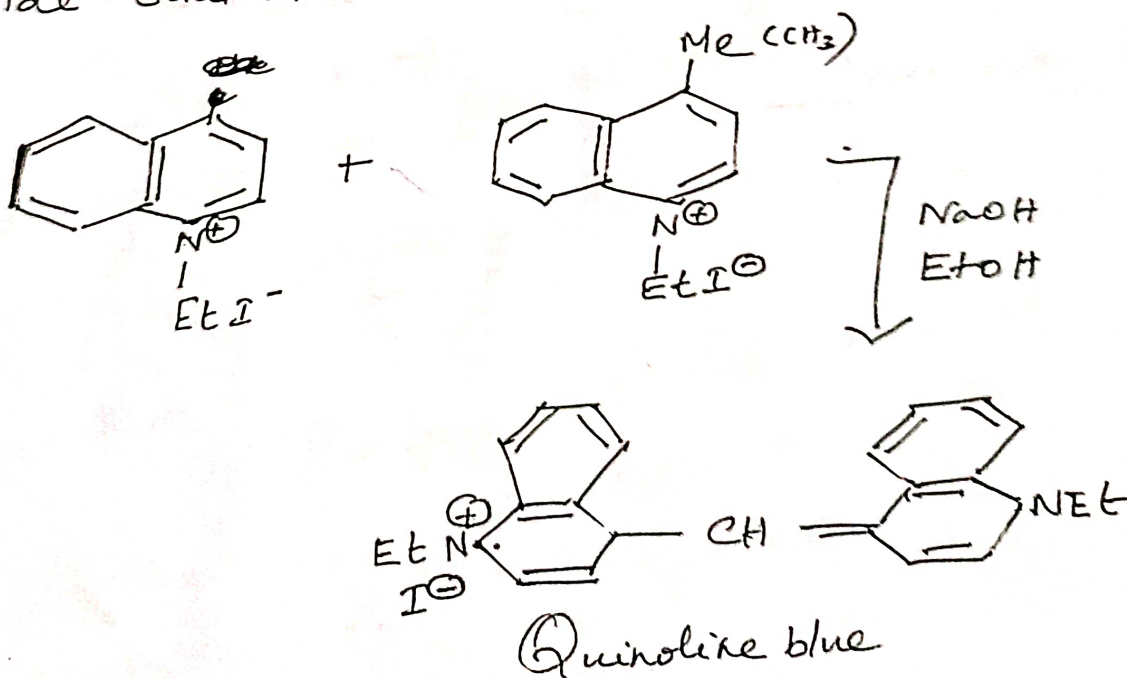 Me (CH₃)
+
N⊕
Et I⁻
N⊕
Et I⊖
NaOH
EtOH
Et N⊕
I⊖
CH
NEt
Quinoline blue